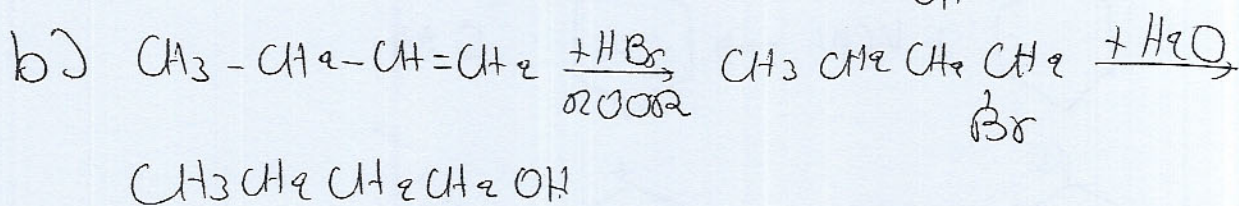 b) CH3 - CH2 - CH = CH2 +HBr → ROOR CH3 CH2 CH2 CH2 Br + H2O →
CH3 CH2 CH2 CH2 OH